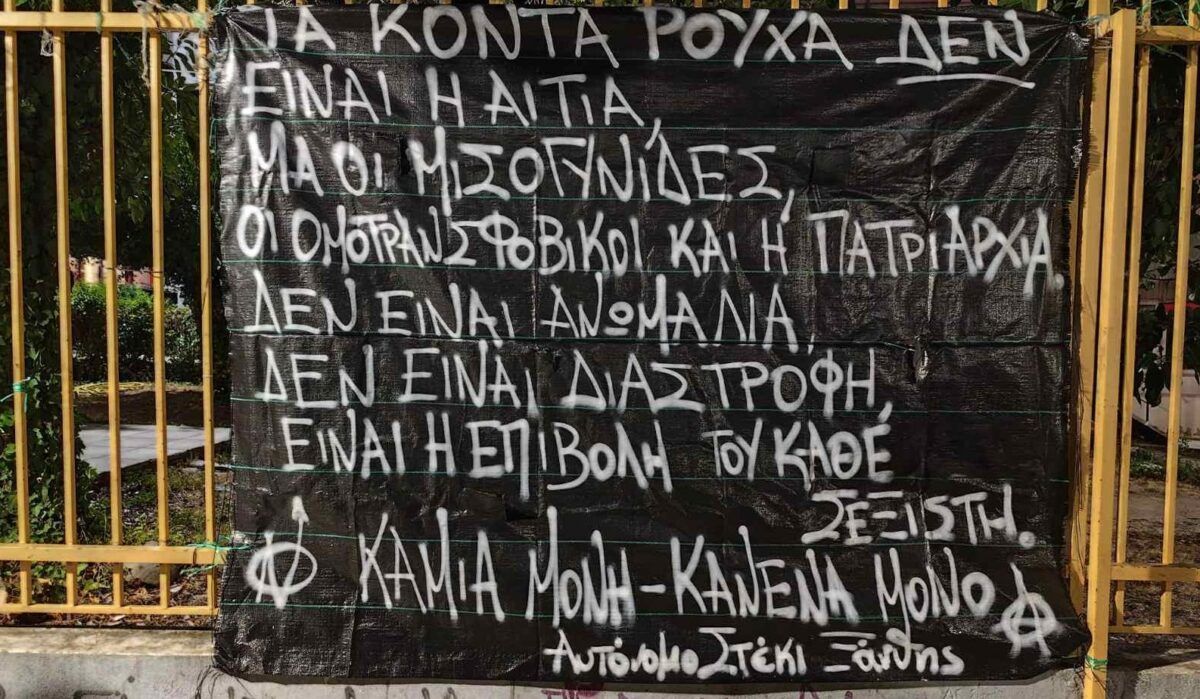 ΤΑ ΚΟΝΤΑ ΡΟΥΧΑ ΔΕΝ
ΕΙΝΑΙ Η ΑΙΤΙΑ,
ΜΑ ΟΙ ΜΙΣΟΓΥΝΙΔΕΣ,
ΟΙ ΟΜΟΤΡΑΝΣΦΟΒΙΚΟΙ ΚΑΙ Η ΠΑΤΡΙΑΡΧΙΑ.
ΔΕΝ ΕΙΝΑΙ ΑΝΩΜΑΛΙΑ,
ΔΕΝ ΕΙΝΑΙ ΔΙΑΣΤΡΟΦΗ,
ΕΙΝΑΙ Η ΕΠΙΒΟΛΗ ΤΟΥ ΚΑΘΕ
ΣΕΞΙΣΤΗ.
ΚΑΜΙΑ ΜΟΝΗ - ΚΑΝΕΝΑ ΜΟΝΟ
Αυτόνομο Στέκι Ξάνθης